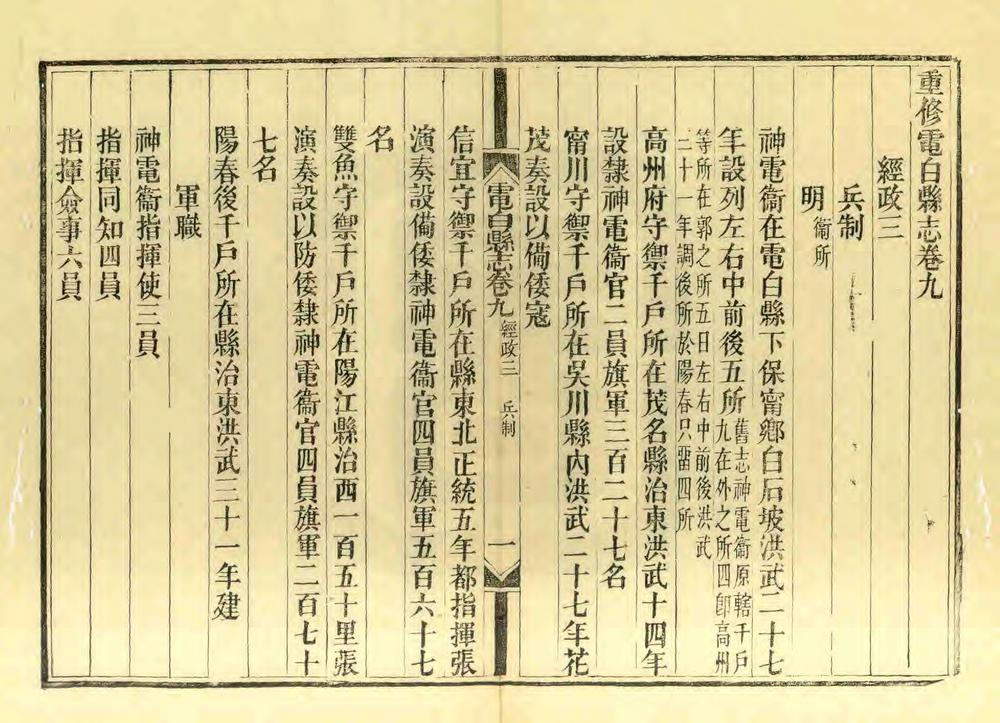 重修電白縣志卷九
經政三
兵制
明衞所
神電衞在電白縣下保甯鄉白石坡洪武二十七
年設列左右中前後五所舊志神電衞原轄千戶
九在外之所四卽高州
等所在郭之所五曰左右中前後洪武
二十一年調後所於陽春只畱四所
高州府守禦千戶所在茂名縣治東洪武十四年
設隸神電衞官二員旗軍三百二十七名
甯川守禦千戶所在吳川縣內洪武二十七年花
茂奏設以備倭寇
電白縣志卷九 經政三 兵制 一
信宜守禦千戶所在縣東北正統五年都指揮張
演奏設備倭隸神電衞官四員旗軍五百六十七
名
雙魚守禦千戶所在陽江縣治西一百五十里張
演奏設以防倭隸神電衞官四員旗軍二百七十
七名
陽春後千戶所在縣治東洪武三十一年建
軍職
神電衞指揮使三員
指揮同知四員
指揮僉事六員